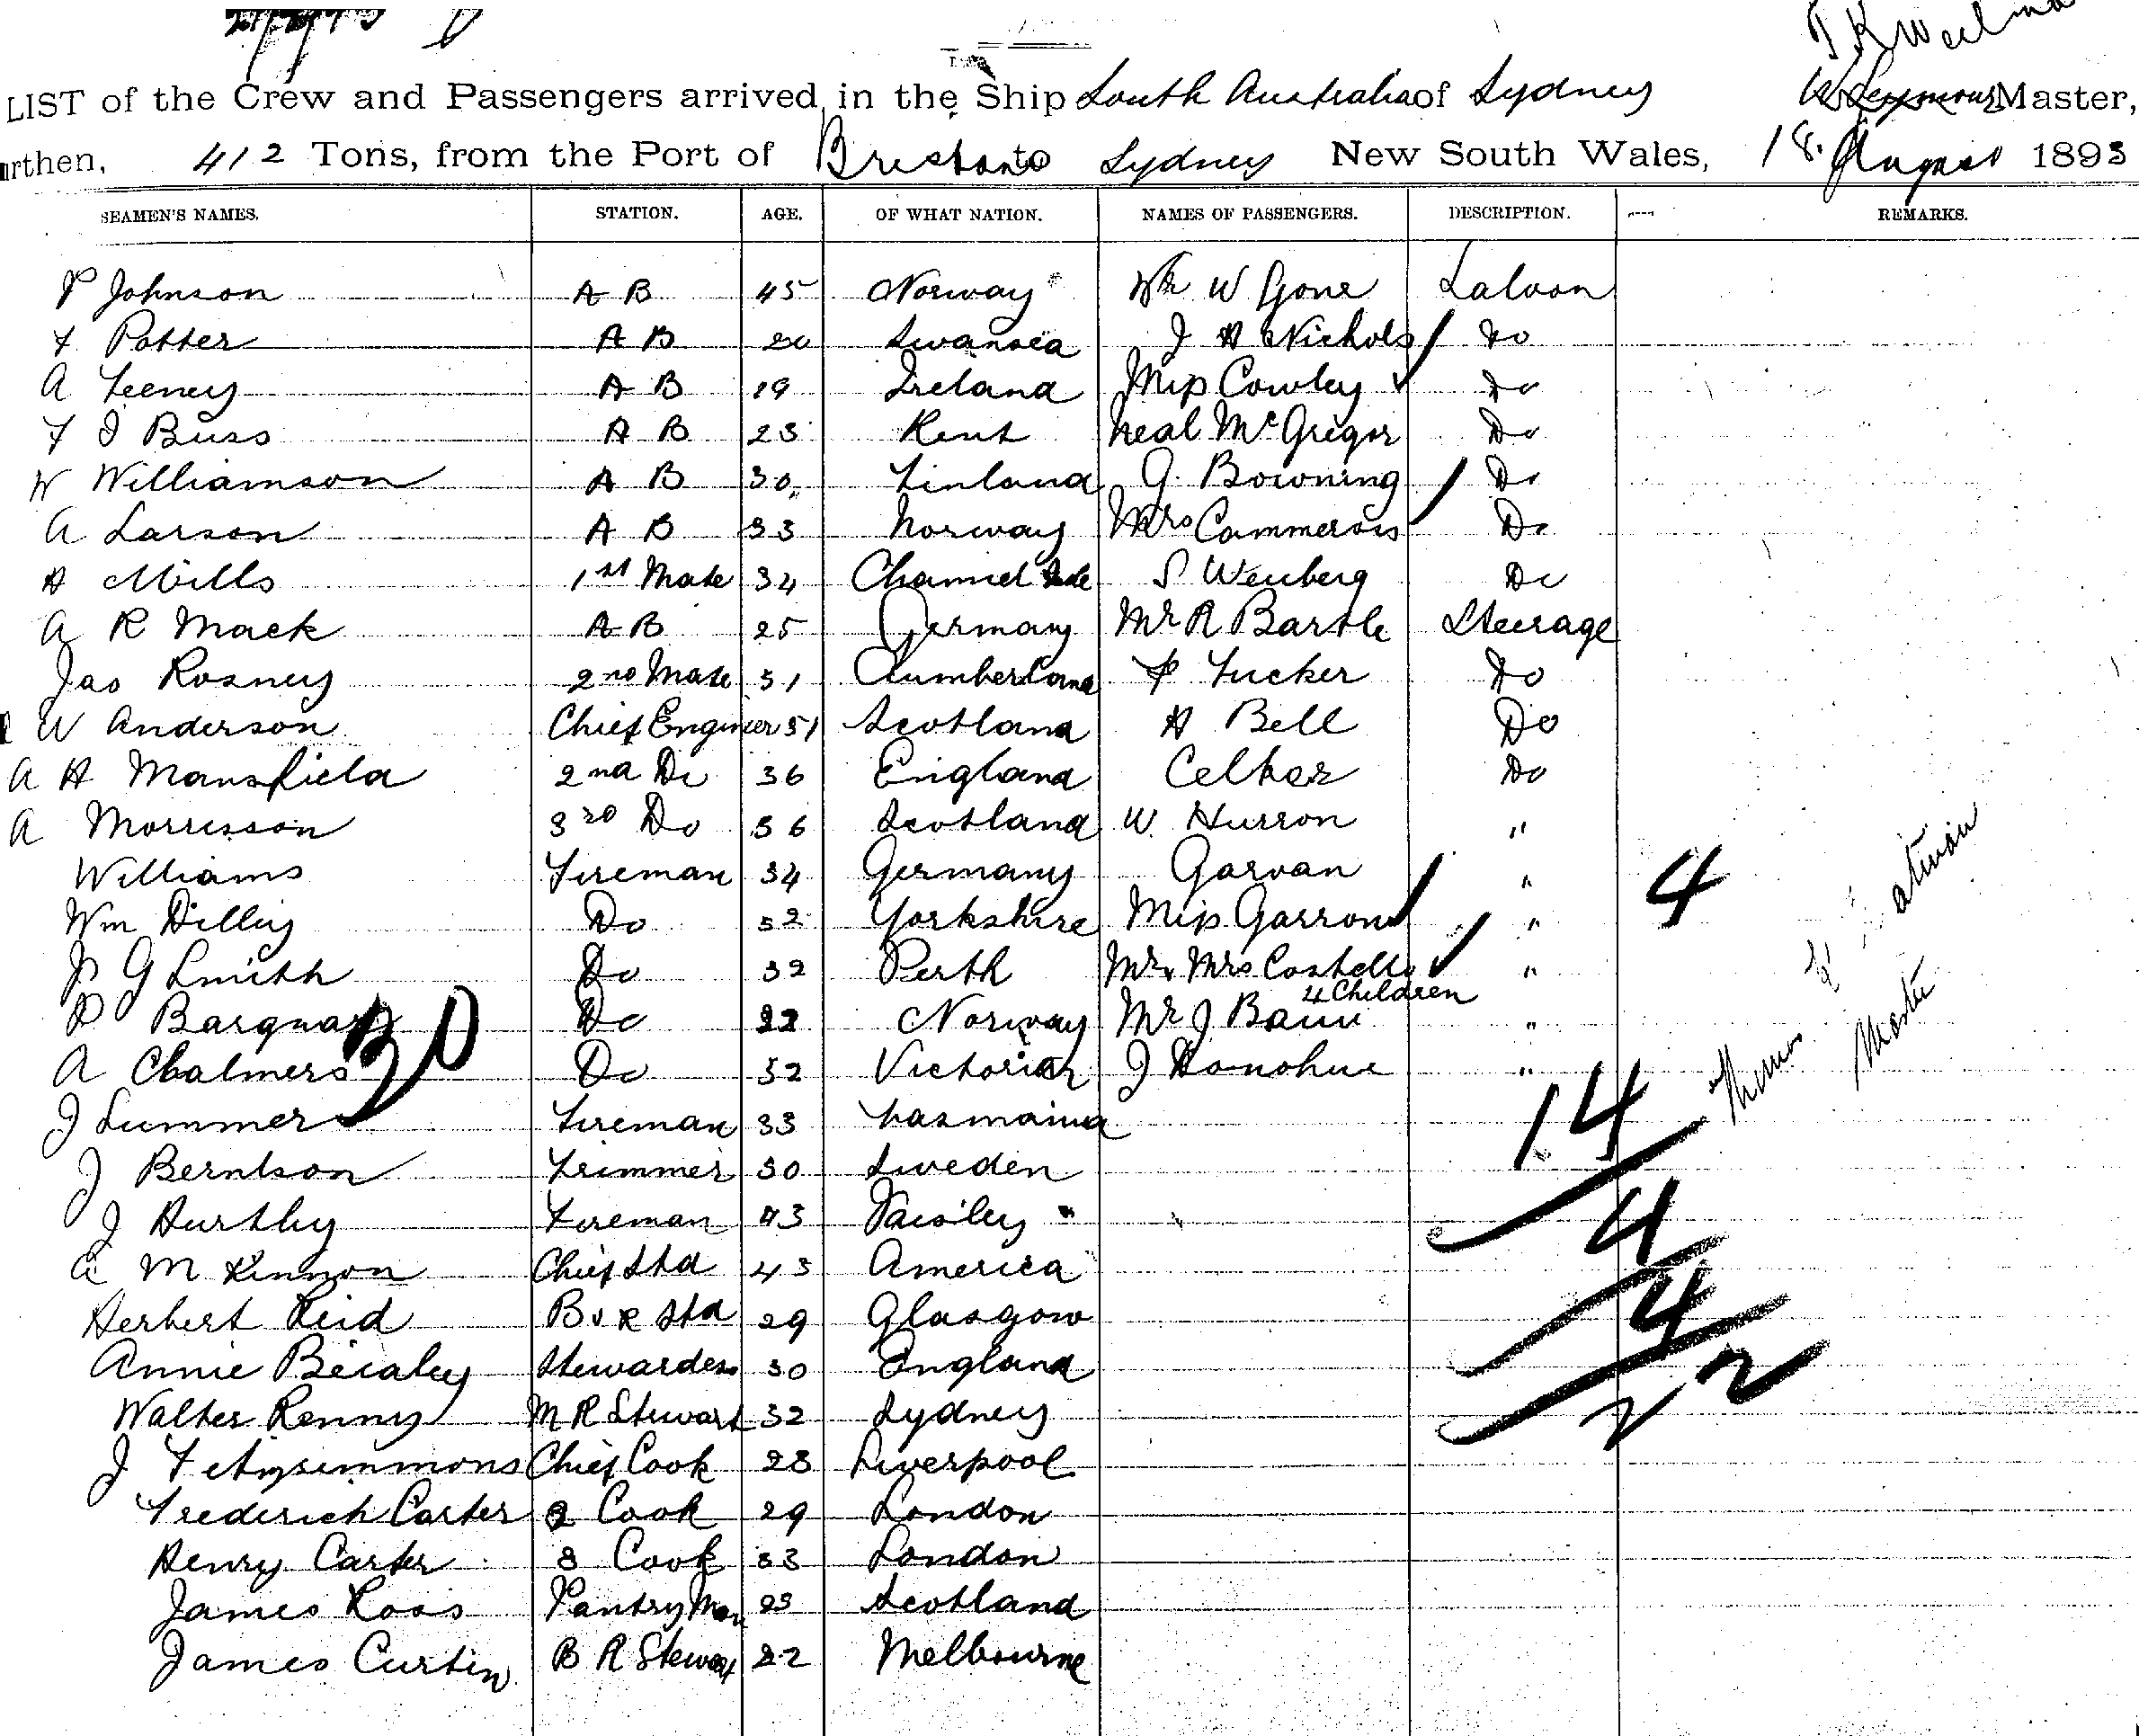 LIST of the Crew and Passengers arrived in the Ship South Australia of Sydney Master,
rthen, 412 Tons, from the Port of Brisbane to Sydney New South Wales, 18. August 1893
SEAMEN'S NAMES. STATION. AGE. OF WHAT NATION. NAMES OF PASSENGERS. DESCRIPTION. REMARKS.
P Johnson A B 45 Norway Mr W Gone Saloon
F. Potter A B 20 Swansea J H Nichols Do
A Feeney A B 19 Ireland Miss Cowley Do
F J Buss A B 23 Kent Neal McGregor Do
W Williamson A B 30 Finland G. Bowning Do
A Larson A B 33 Norway Mrs Do
H Mills 1st Mate 34 Channel S Weinberg Do
A R Mack A B 25 Germany Mr R Bartle Steerage
Jas Rosney 2nd Mate 31 Cumberland P Tucker Do
W Anderson Chief Engineer 51 Scotland H Bell Do
A H Mansfield 2nd Do 36 England Do
A Morrisson 3rd Do 36 Scotland W. Hurron "
Williams Fireman 34 Germany Garvan " 4
Wm Dilley Do 52 Yorkshire Miss Garron "
P G Smith Do 32 Perth Mr & Mrs Costello "
4 Children
P Do 22 Norway Mr J "
A Chalmers Do 32 Victoria J Donohue "
J Summer Fireman 33 Tasmania 14
J Berntson Trimmer 30 Sweden
J Hurtley Fireman 43 Paisley 4
A McKinnon Chief Std 43 America
Herbert Reid B & R Std 29 Glasgow 4
Annie Stewardess 30 England
Walter Renny M R Stewart 32 Sydney 22
J Fitzsimmons Chief Cook 28 Liverpool
Frederich Carter 2 Cook 29 London
Henry Carter 3 Cook 33 London
James Ross Pantry Man 23 Scotland
James Curtin B R Stewart 22 Melbourne
Master